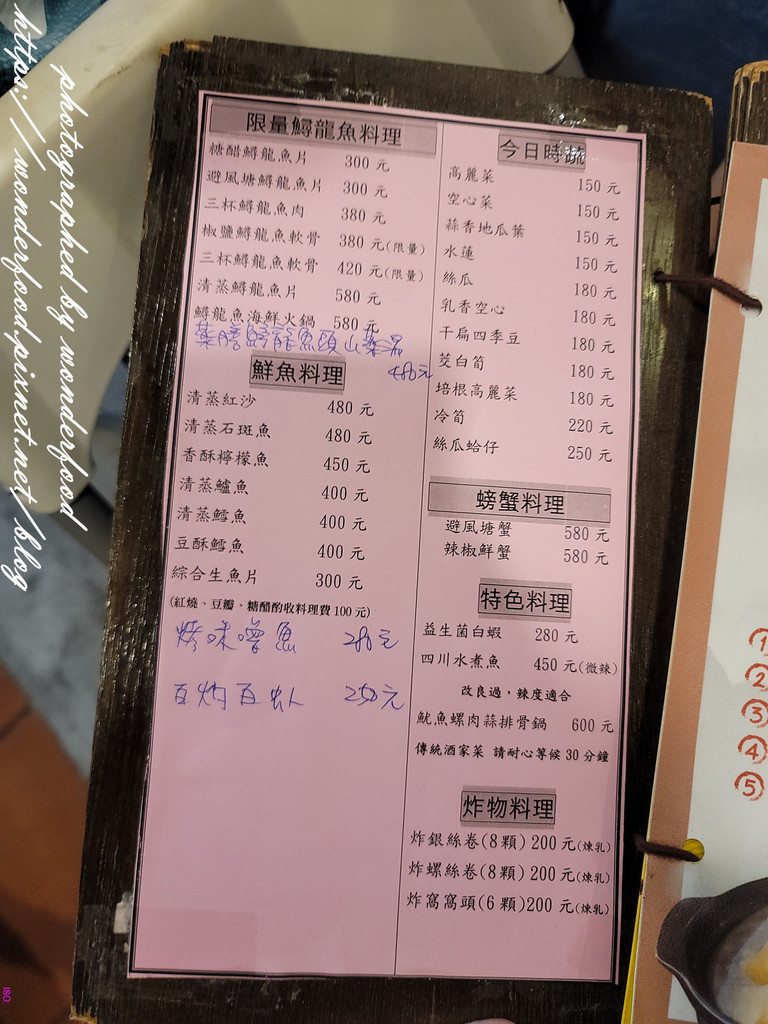 限量鱘龍魚料理
糖醋鱘龍魚片 300 元
避風塘鱘龍魚片 300 元
三杯鱘龍魚肉 380 元
椒鹽鱘龍魚軟骨 380 元(限量)
三杯鱘龍魚軟骨 420 元(限量)
清蒸鱘龍魚片 580 元
鱘龍魚海鮮火鍋 580 元
藥膳鱘龍魚頭山藥湯
480元
鮮魚料理
清蒸紅沙 480 元
清蒸石斑魚 480 元
香酥檸檬魚 450 元
清蒸鱸魚 400 元
清蒸鱈魚 400 元
豆酥鱈魚 400 元
綜合生魚片 300 元
(紅燒、豆瓣、糖醋酌收料理費 100 元)
烤味噌魚 280元
百灼百虾 250元
今日時蔬
高麗菜 150 元
空心菜 150 元
蒜香地瓜葉 150 元
水蓮 150 元
絲瓜 180 元
乳香空心 180 元
干扁四季豆 180 元
茭白筍 180 元
培根高麗菜 180 元
冷筍 220 元
絲瓜蛤仔 250 元
螃蟹料理
避風塘蟹 580 元
辣椒鮮蟹 580 元
特色料理
益生菌白蝦 280 元
四川水煮魚 450 元(微辣)
改良過，辣度適合
魷魚螺肉蒜排骨鍋 600 元
傳統酒家菜 請耐心等候 30 分鐘
炸物料理
炸銀絲卷(8 顆) 200 元(煉乳)
炸螺絲卷(8 顆) 200 元(煉乳)
炸窩窩頭(6 顆)200 元(煉乳)
①
②
③
④
⑤
photographed by wonderfood
https://wonderfood.pixnet.net/blog
ISO